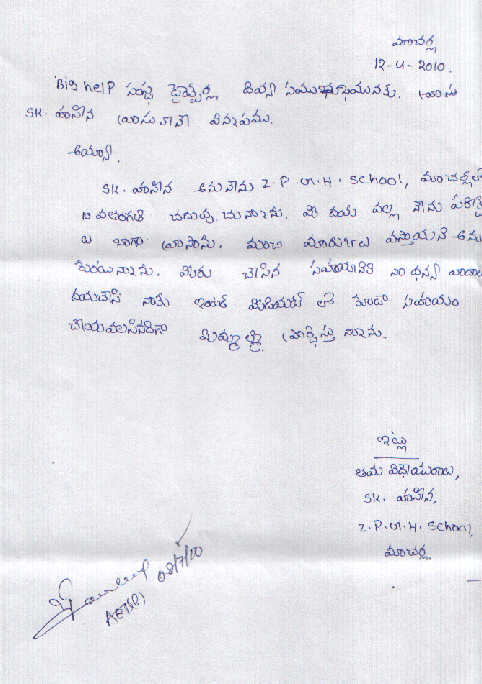 మాచర్ల,
12-4-2010.
Big help సంస్థ హైదర్స్ల, దివ్య సముఖమునకు,
SK. హసీన వ్రాసుకొనే విన్నపము.
అయ్యా,
SK. హసీన అను నేను Z.P.G.H. School, మాచర్లలో
వ తరగతి చదువుచున్నాను. మీ దయ వల్ల నేను పరీక్ష
బాగా వ్రాసాను. మంచి మార్కులు వస్తాయని అను
కుంటున్నాను. మీరు చేసిన సహాయానికి
దయచేసి నాకు ఇంటర్ మీడియట్ లో కూడా సహాయం
చేయవలసినదిగా మిమ్మల్ని ప్రార్థిస్తున్నాను.
ఇట్లు
తమ విధేయురాలు,
SK. హసీన,
Z.P.G.H. School,
మాచర్ల.
08/7/10